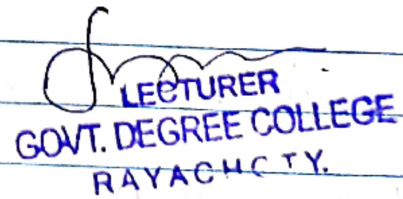 LECTURER
GOVT. DEGREE COLLEGE
RAYACHOTY.